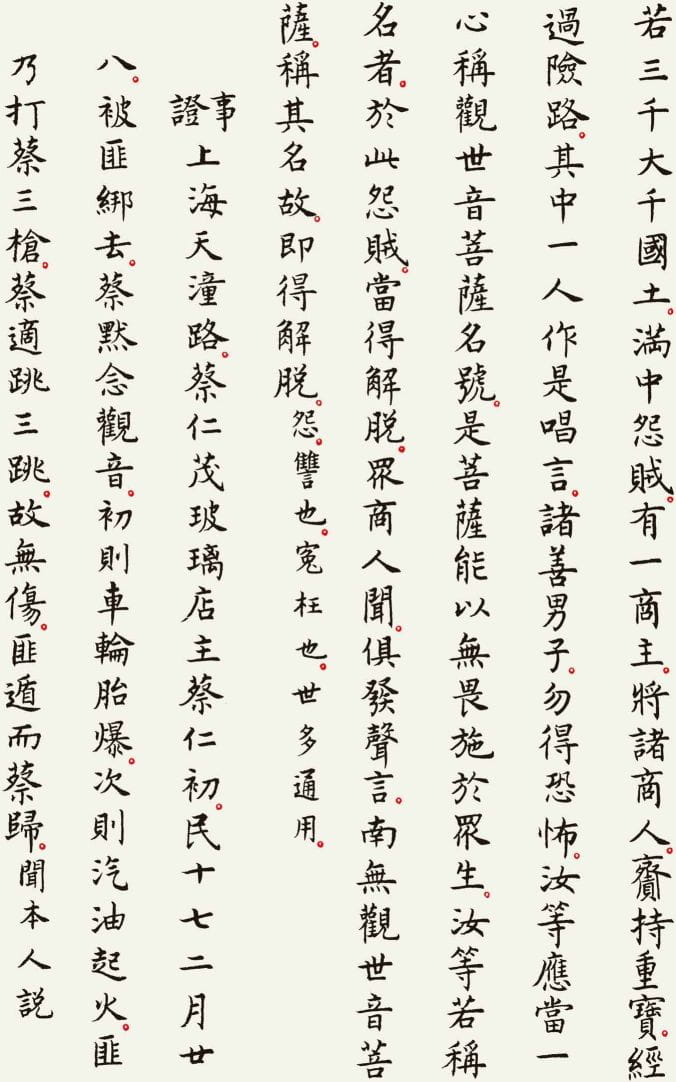 若三千大千國土。滿中怨賊。有一商主。將諸商人。齎持重寶。經
過險路。其中一人作是唱言。諸善男子。勿得恐怖。汝等應當一
心稱觀世音菩薩名號。是菩薩能以無畏施於眾生。汝等若稱
名者。於此怨賊。當得解脫。眾商人聞。俱發聲言。南無觀世音菩
薩。稱其名故。即得解脫。怨。讐也。寃枉也。世多通用。
事證上海天潼路。蔡仁茂玻璃店主蔡仁初。民十七二月廿
八。被匪綁去。蔡默念觀音。初則車輪胎爆。次則汽油起火。匪
乃打蔡三槍。蔡適跳三跳。故無傷。匪遁而蔡歸。聞本人説